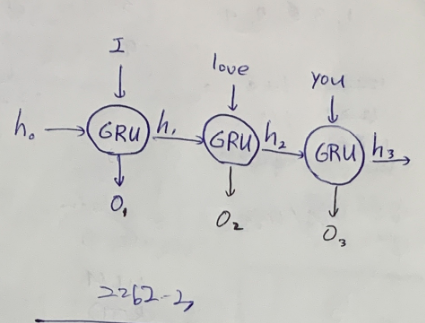 I love you
h₀ GRU h₁ GRU h₂ GRU h₃
O₁ O₂ O₃